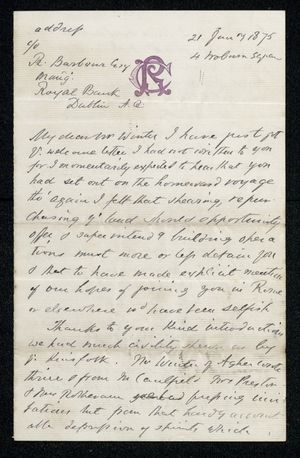 address
c/o
R. Barbour Esq
Manag.
Royal Bank
Dublin
21 Jany 1875
4 Woburn Square
My dear Mr Winter I have just got
yr welcome letter I had not written to you
for I momentarily expected to hear that you
had set out on the homeward voyage
tho' again I felt that shearing, repur-
chasing yr land should opportunity
offer & superintendg building opera
tions must more or less detain you
& that to have made explicit mention
of our hopes of joining you in Rome
or elsewhere wd have been selfish
Thanks to your kind introductions
we had much civility shewn us by
yr kinsfolk. Mr Winter of Agher wrote
thrice & from Mr Caulfeild Mrs Preston
& Mrs Rotheram pressing invi
tations but from that hardly account
able depression of spirits which